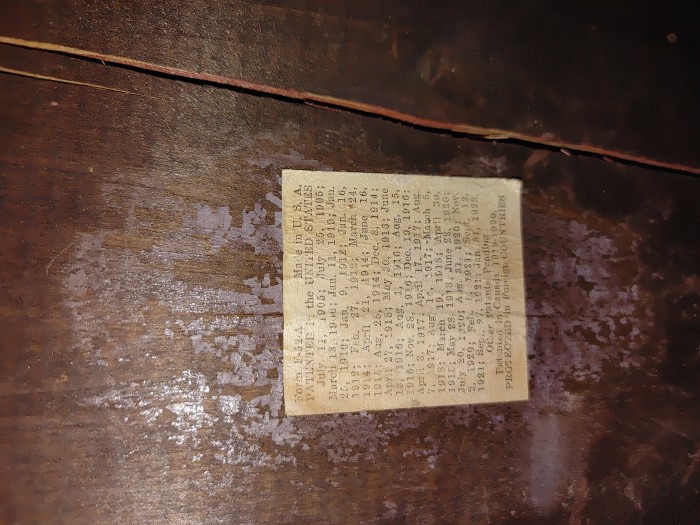 Form P-52-A Made in U. S. A.
PATENTED in the UNITED STATES
July 11, 1905; July 25, 1905;
March 13, 1906; Jan. 11, 1910; Jan.
25, 1910; Jan. 9, 1912; Jan. 16,
1912; Feb. 27, 1912; March 24,
1914; April 21, 1914; June 16,
1914; Aug. 25, 1914; Dec. 8, 1914;
April 27, 1915; May 30, June
13, Aug. 1, 1916; Aug. 15,
1916; Nov. 28, 1916; Dec. 19, 1916;
April 3, 1917; April 17, 1917; Aug.
7, 1917; Aug. 1917; March 5,
1918; March 19, 1918; April 30,
1918; May 28, June 22, 1920;
July 20, 1920; Aug. 31, 1920; Nov.
2, 1920; Feb. 8, 1921; Sept. 13,
1921; Sept. 27, 1921; Jan.
Other Patents Pending
Patented in Canada,
PROTECTED in Foreign COUNTRIES